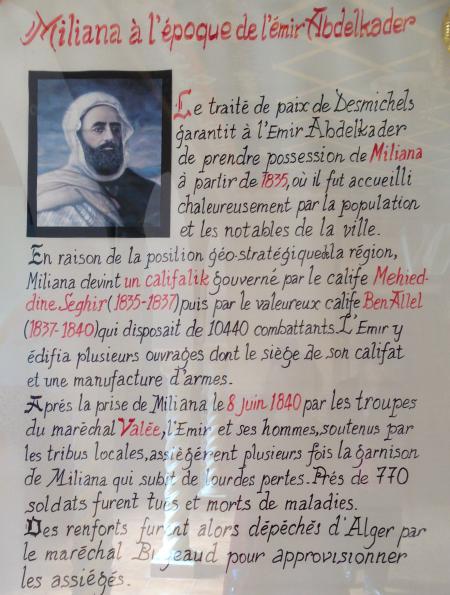 Miliana à l'époque de l'émir Abdelkader
Le traité de paix de Desmichels
garantit à l'Emir Abdelkader
de prendre possession de Miliana
à partir de 1835, où il fut accueilli
chaleureusement par la population
et les notables de la ville.
En raison de la position géo-stratégique de la région,
Miliana devint un califalik gouverné par le calife Mehied-
dine Seghir (1835-1837) puis par le valeureux calife Ben Allel
(1837-1840) qui disposait de 10440 combattants. L'Emir y
édifia plusieurs ouvrages dont le siège de son califat
et une manufacture d'armes.
Après la prise de Miliana le 8 juin 1840 par les troupes
du maréchal Valée, l'Emir et ses hommes, soutenus par
les tribus locales, assiégèrent plusieurs fois la garnison
de Miliana qui subit de lourdes pertes. Prés de 770
soldats furent tués et morts de maladies.
Des renforts furent alors dépéchés d'Alger par
le maréchal Bugeaud pour approvisionner
les assiégés.